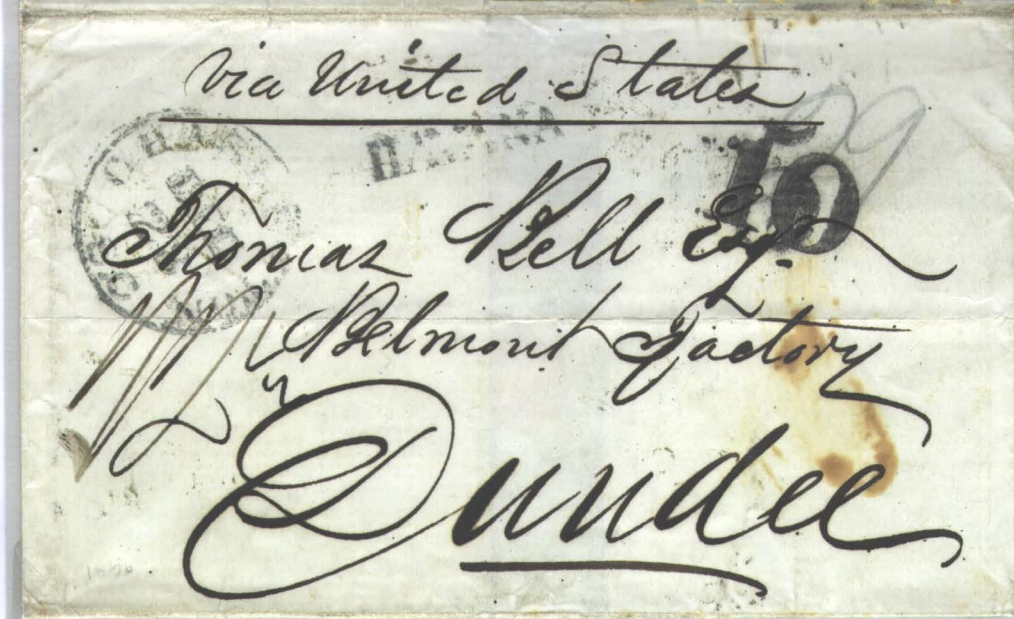 via United States
HAVANA
10
Thomas Bell Esqr.
Belmont Factory
Dundee